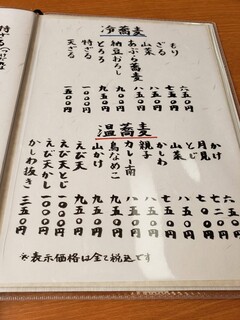 冷蕎麦
もり 六五〇円
ざる 七五〇円
山菜 八五〇円
あぶら蕎麦 八五〇円
納豆おろし 九五〇円
とろろ 九五〇円
特ざる 一〇〇〇円
天ざる 一五〇〇円
温蕎麦
かけ 六五〇
月見 七〇〇円
とじ 七五〇円
山菜 八五〇円
かしわ 八五〇円
親子 八五〇円
カレー南 八五〇円
鳥なめこ 九五〇円
山かけ 九五〇円
えび天 九五〇円
えび天とじ 一〇〇〇円
えび天かしわ 一〇〇円
かしわ抜き 三五〇円
※表示価格は全て税込です